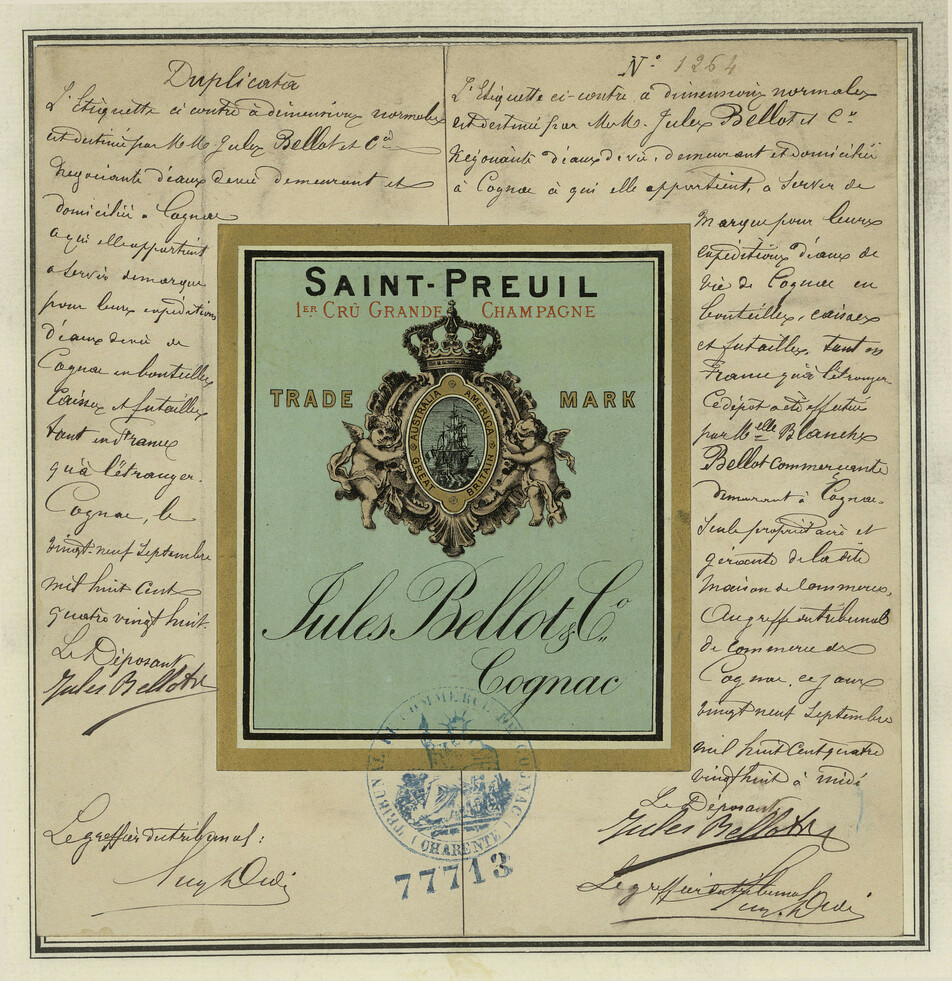 Duplicata
L'Etiquette ci contre à dimensions normales
est destiné par M M Jules Bellot et Cie
Négociants d'eaux de vie demeurant et
domiciliés à Cognac
a qui elle appartient
a servir de marque
pour leurs expéditions
d'eaux de vie de
Cognac en bouteilles
Caisses et futailles
tant en France
qu'à l'étranger.
Cognac, le
vingt-neuf Septembre
mil huit cent
quatre vingt huit.
Le Déposant
Jules Bellot
Le greffier du tribunal :
N° 1264
L'Etiquette ci-contre à dimensions normales
est destiné par M.M. Jules Bellot et Cie
Négociants d'eaux de vie, demeurant et domiciliés
à Cognac à qui elle appartient, a servir de
marque pour leurs
expéditions d'eaux de
vie de Cognac en
bouteilles, caisses
et futailles, tant en
France qu'à l'étranger
Ce dépôt a été effectué
par Melle Blanche
Bellot Commerçante
demeurant à Cognac.
Seule propriétaire et
gérante de la dite
maison de Commerce,
Au greffe du tribunal
de Commerce de
Cognac, ce jour
vingt neuf Septembre
mil huit cent quatre
vingt huit à midi
Le Déposant
Jules Bellot
Le greffier du tribunal
SAINT-PREUIL
1ER CRÛ GRANDE CHAMPAGNE
TRADE MARK
AUSTRALIA AMERICA
GREAT BRITAIN
Jules Bellot & Co.
Cognac
TRIBUNAL DE COMMERCE DE COGNAC
(CHARENTE)
77713